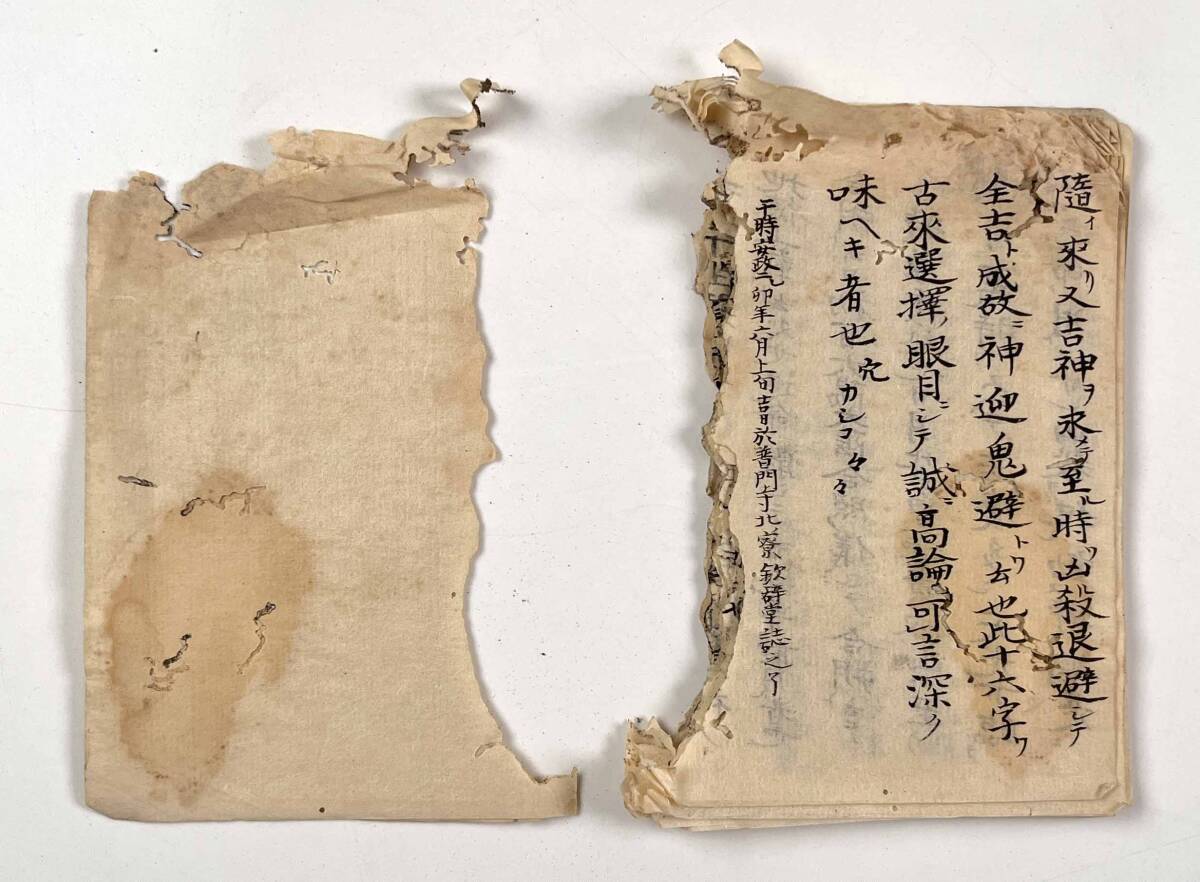 隨イ來リ又吉神ヲ求メテ至ル時ハ凶殺退避シテ
全吉ト成故ニ神迎鬼避トハ云也此十六字ハ
古來選擇ノ眼目ニシテ誠ニ高論可言深ク
味ヘキ者也穴カシコ々々
于時安政乙卯年六月上旬吉日於普門寺北寮欽辟堂誌之了